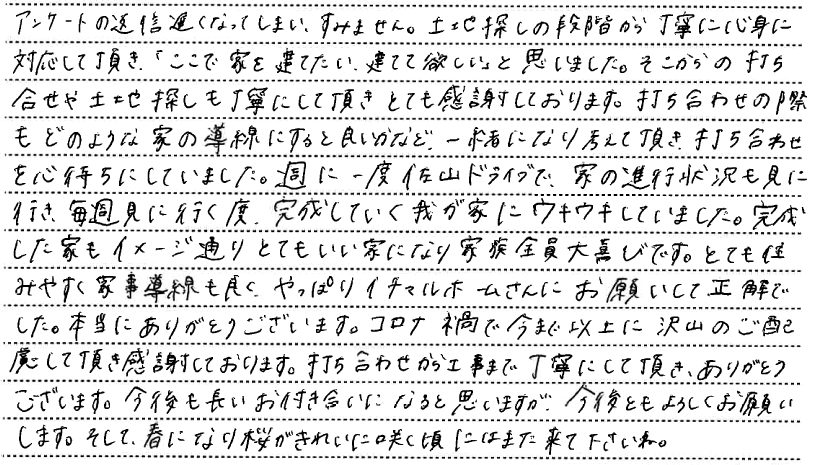 アンケートの送信遅くなってしまい、すみません。土地探しの段階から丁寧に心身に
対応して頂き、「ここで家を建てたい、建てて欲しい」と思いました。そこからの打ち
合せや土地探しも丁寧にして頂きとても感謝しております。打ち合わせの際
もどのような家の導線にすると良いかなど、一緒になり考えて頂き、打ち合わせ
を心待ちにしていました。週に一度佐山ドライブで、家の進行状況も見に
行き、毎週見に行く度、完成していく我が家にウキウキしていました。完成
した家もイメージ通りとてもいい家になり家族全員大喜びです。とても住
みやすく家事導線も良く、やっぱりイチマルホームさんにお願いして正解で
した。本当にありがとうございます。コロナ禍で今まで以上に沢山のご配
慮して頂き感謝しております。打ち合わせから工事まで丁寧にして頂き、ありがとう
ございます。今後も長いお付き合いになると思いますが、今後ともよろしくお願い
します。そして、春になり桜がきれいに咲く頃にはまた来て下さいね。